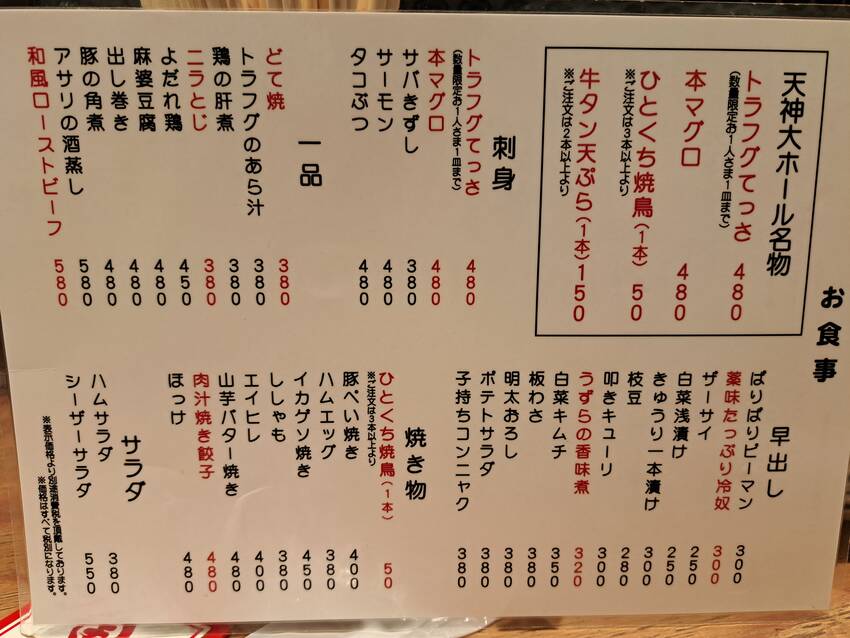 お食事
天神大ホール名物
トラフグてっさ 480
(数量限定お1人さま1皿まで)
本マグロ 480
ひとくち焼鳥(1本) 50
※ご注文は3本以上より
牛タン天ぷら(1本) 150
※ご注文は2本以上より
刺身
トラフグてっさ 480
(数量限定お1人さま1皿まで)
本マグロ 480
サバきずし 380
サーモン 480
タコぶつ 480
一品
どて焼 380
トラフグのあら汁 380
鶏の肝煮 380
ニラとじ 380
よだれ鶏 450
麻婆豆腐 480
出し巻き 480
豚の角煮 480
アサリの酒蒸し 580
和風ローストビーフ 580
早出し
ぱりぱりピーマン 300
薬味たっぷり冷奴 300
ザーサイ 250
白菜浅漬け 250
きゅうり一本漬け 300
枝豆 280
叩きキューリ 300
うずらの香味煮 320
白菜キムチ 350
板わさ 380
明太おろし 380
ポテトサラダ 380
子持ちコンニャク 380
焼き物
ひとくち焼鳥(1本) 50
※ご注文は3本以上より
豚ぺい焼き 400
ハムエッグ 380
イカゲソ焼き 450
ししゃも 380
エイヒレ 400
山芋バター焼き 480
肉汁焼き餃子 480
ほっけ 480
サラダ
ハムサラダ 380
シーザーサラダ 550
※表示価格より別途消費税を頂戴しております。
※価格はすべて税別になります。